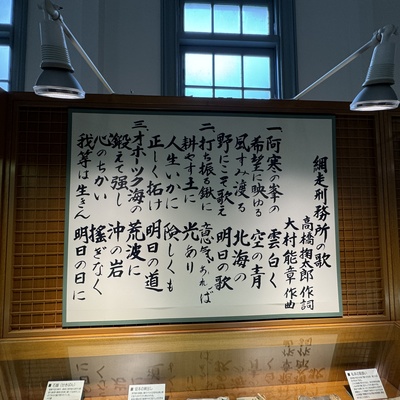 網走刑務所の歌
高橋掬太郎 作詞
大村能章 作曲
一阿寒の峯の 雲白く
希望に映ゆる 空の青
風すみ渡る 北海の
野にこそ歌え 明日の歌
二、打ち振る鍬に 意気あれば
耕やす土に 光あり
人生いかに 険しくも
正しく拓け 明日の道
三、オホーツク海の 荒波に
鍛えて強し 沖の岩
心のちかい 搖ぎなく
我等は生きん 明日の日に